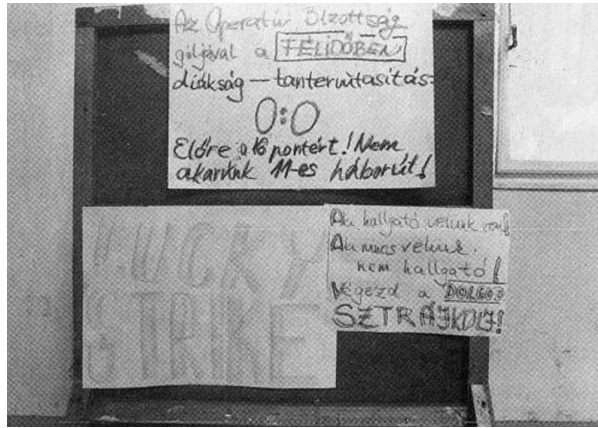 Az Operatív Bizottság
góljával a FÉLIDŐBEN
diákság — tanterműtasítás:
0:0
Előre a 16 pontért! Nem
akarunk 11-es háborút!
LUCKY
STRIKE
Aki hallgató velünk van!
Aki nincs velünk
nem hallgató!
Végezd a DOLGOD
SZTRÁJKOLJ!